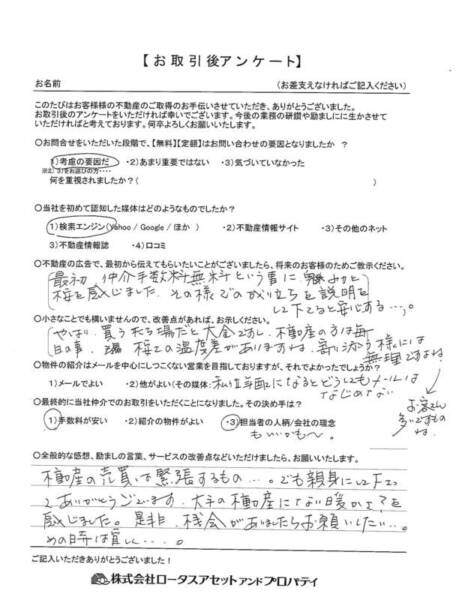 【お取引後アンケート】
お名前 (お差支えなければご記入ください)
このたびはお客様様の不動産のご取得のお手伝いさせていただき、ありがとうございました。
お取引後のアンケートをいただければ幸いでございます。今後の業務の研鑽や励ましにに生かさせて
いただければと考えております。何卒よろしくお願いいたします。
〇お問合せをいただいた段階で、【無料】【定額】はお問い合わせの要因となりましたか ?
1)考慮の要因だ ・2)あまり重要ではない ・3)気づいていなかった
※2)3)をお選びの方・・・
何を重視されましたか?( )
〇当社を初めて認知した媒体はどのようなものでしたか?
1)検索エンジン(Yahoo / Google / ほか ) ・2)不動産情報サイト ・3)その他のネット
3)不動産情報誌 ・4)口コミ
〇不動産の広告で、最初から伝えてもらいたいことがございましたら、将来のお客様のためご教示ください。
最初、仲介手数料無料という事に
を感じました。その様でのなり立ちを説明を
して下さると安心する...。
〇小さなことでも構いませんので、改善点があれば、お示しください。
やっぱり、買う立場だと大金ですし、不動産の方は毎
日の事、温度差がありますね、寄り添う様には
無理ですよね
〇物件の紹介はメールを中心にしつこくない営業を目指しておりますが、それでよかったでしょうか?
1)メールでよい ・2)他がよい(その媒体:私位年齢になるとどうしてもメールは
なじめない
お客さん
多いですもの
ね。
〇最終的に当社仲介でのお取引をいただくことになりました。その決め手は?
1)手数料が安い ・2)紹介の物件がよい ・3)担当者の人柄/会社の理念
もいいかも〜。
〇全般的な感想、励ましの言葉、サービスの改善点などいただけましたら、お願いいたします。
不動産の売買は緊張するもの...。でも親身にして下さっ
てありがとうございます。大手の不動産にない暖かさ?を
感じました。是非、機会がありましたらお願いしたい...。
その時は宜しく....。
ご記入いただきありがとうございました!
株式会社ロータスアセットアンドプロパティ